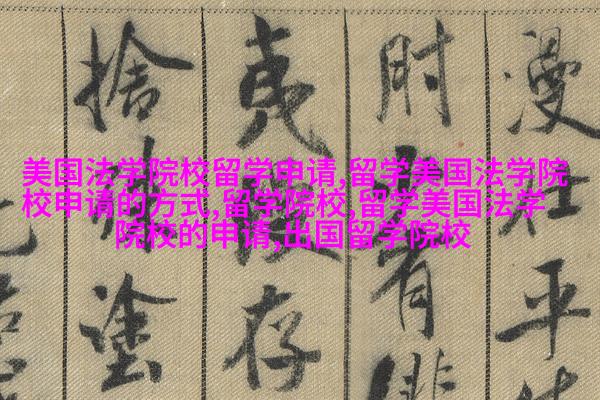 美国法学院校留学申请,留学美国法学院
校申请的方式,留学院校,留学美国法学
院校的申请,出国留学院校
漫仕平
時有
夷險存
捨塗